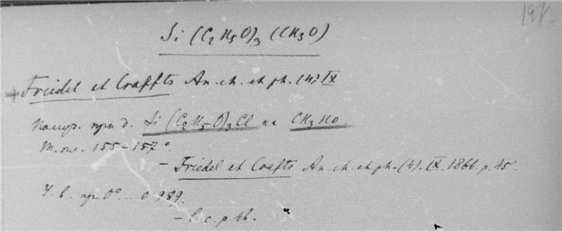 198.
Si (C2H5O)3 (CH3O)
+ Friedel et Craffts An. ch. et ph. (4) IX
Получ. при д. Si (C2H5O)3Cl на CH3HO
Т. кип. 155–157°
– Friedel et Crafts An. ch. et ph. (4). IX. 1866. p. 15
У. в. при 0° – 0.989.
– l. c. p.